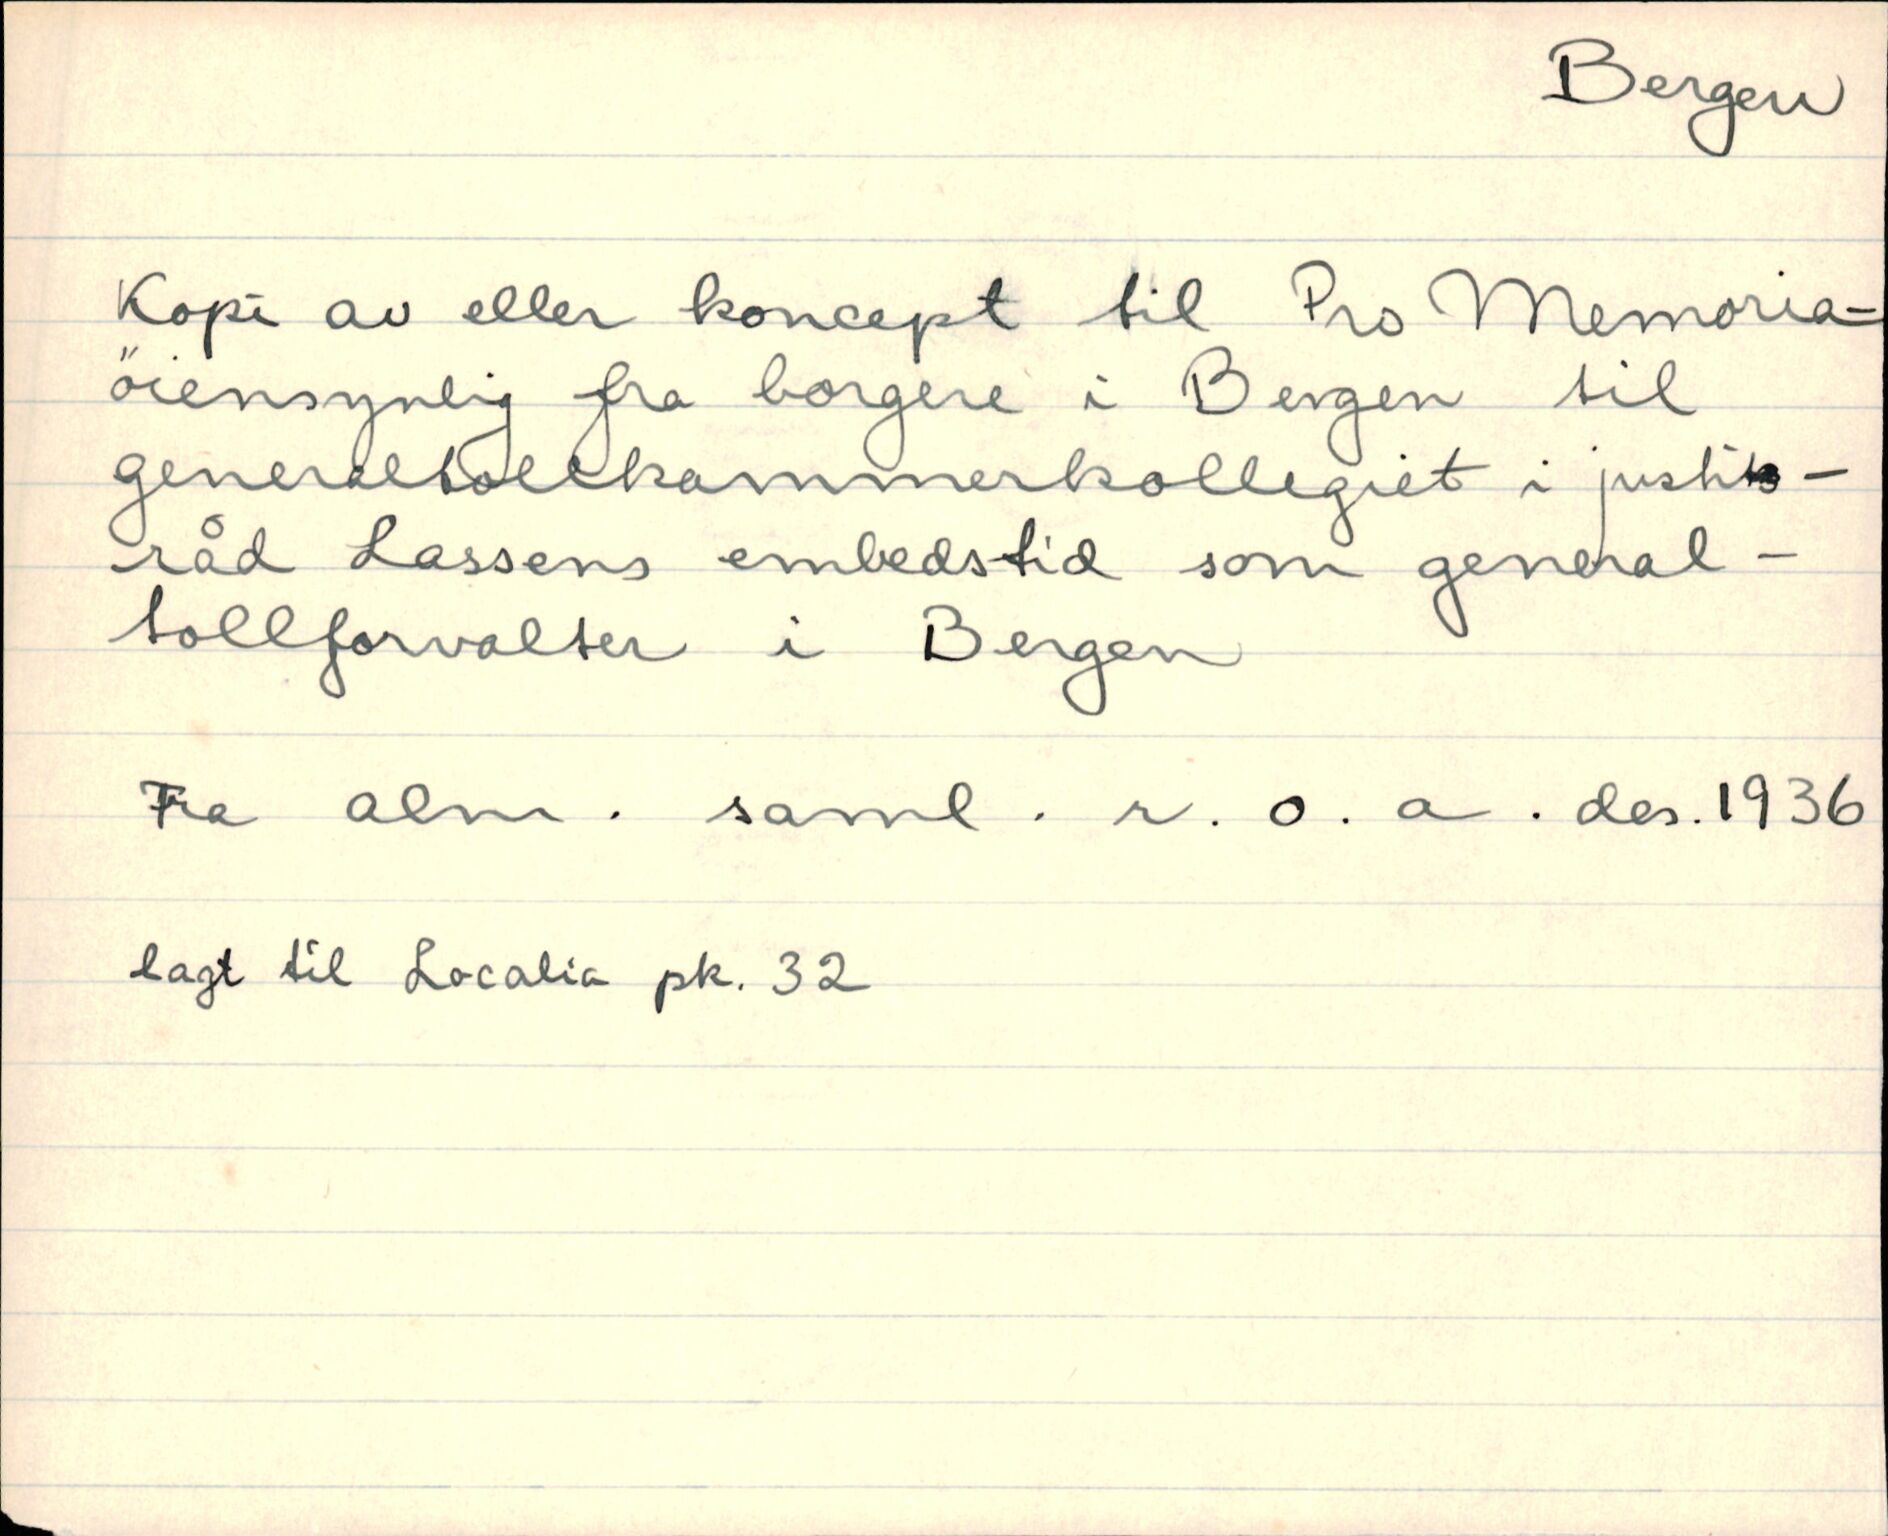 Bergen
Kopi av eller koncept til Pro Memoria -
öiensynlig fra borgere i Bergen til
generaltollkammerkollegiet i justits -
råd Lassens embedstid som general -
tollforvalter i Bergen
Fra alm. saml. r. o. a. des. 1936
lagt til Localia pk. 32